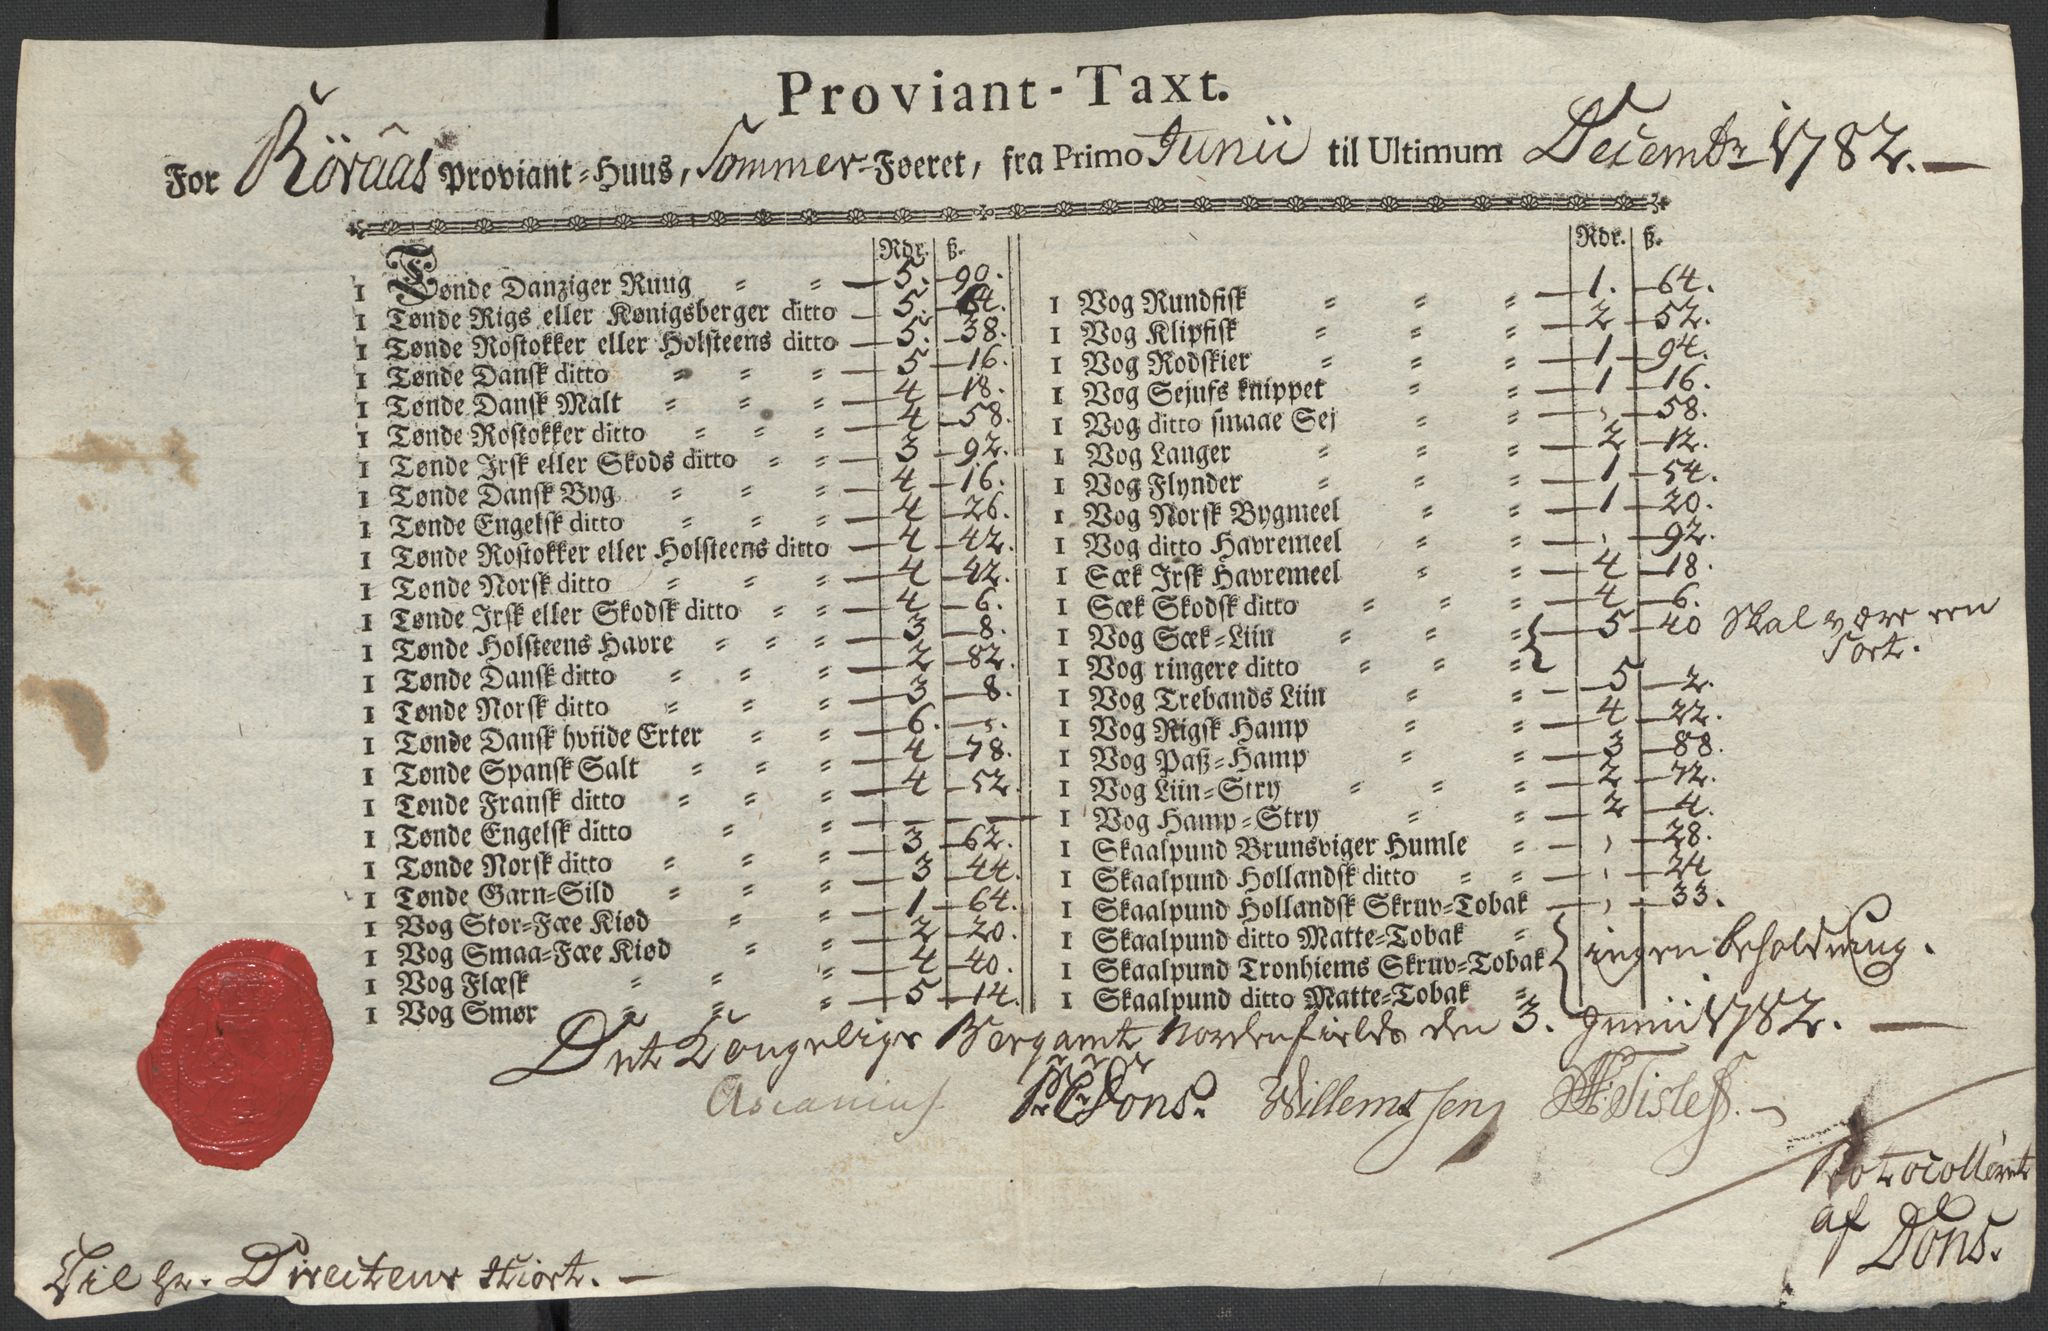 Proviant-Taxt.
For Röraas Proviant-Huus, Sommer-Foeret, fra Primo Junii til Ultimum Decembr 1782.
Rdr. ß.
1 Tønde Danziger Ruug 5. 90.
1 Tønde Rigs eller Kønigsberger ditto 5. 64.
1 Tønde Rostokker eller Holsteens ditto 5. 38.
1 Tønde Dansk ditto 5 16.
1 Tønde Dansk Malt 4 18.
1 Tønde Rostokker ditto 4 58.
1 Tønde Irsk eller Skods ditto 3 92.
1 Tønde Dansk Byg 4 16.
1 Tønde Engelsk ditto 4 26.
1 Tønde Rostokker eller Holsteens ditto 4 42.
1 Tønde Norsk ditto 4 42.
1 Tønde Irsk eller Skodsk ditto 4 6.
1 Tønde Holsteens Havre 3 8.
1 Tønde Dansk ditto 2 82.
1 Tønde Norsk ditto 3 8.
1 Tønde Dansk hviide Erter 6. -
1 Tønde Spansk Salt 4 78.
1 Tønde Fransk ditto 4 52.
1 Tønde Engelsk ditto - -
1 Tønde Norsk ditto 3 62.
1 Tønde Garn-Sild 3 44.
1 Vog Stor-Fæe Kiød 1 64.
1 Vog Smaa-Fæe Kiød 2 20.
1 Vog Flæsk 4 40.
1 Vog Smør 5 14.
Rdr. ß.
1 Vog Rundfisk 1. 64.
1 Vog Klipfisk 2 52.
1 Vog Rodskier 1 94.
1 Vog Sejufs knippet 1 16.
1 Vog ditto smaae Sej , 58.
1 Vog Langer 2 12.
1 Vog Flynder 1 54.
1 Vog Norsk Bygmeel 1 20.
1 Vog ditto Havremeel , 92.
1 Sæk Irsk Havremeel 4 18.
1 Sæk Skodsk ditto 4 6.
1 Vog Sæk-Liin 5 40 Skal være een
1 Vog ringere ditto Sort.
1 Vog Trebands Liin 5 2.
1 Vog Rigsk Hamp 4 22.
1 Vog Paß-Hamp 3 88.
1 Vog Liin-Stry 2 72.
1 Vog Hamp-Stry 2 4.
1 Skaalpund Brunsviger Humle , 28.
1 Skaalpund Hollandsk ditto , 24
1 Skaalpund Hollandsk Skruv-Tobak , 33.
1 Skaalpund ditto Matte-Tobak
1 Skaalpund Tronhiems Skruv-Tobak ingen beholdning.
1 Skaalpund ditto Matte-Tobak
Det Kongelige Bergamt Nordenfields den 3. Junii 1782.
Ascanius P. E. Dons. Willemssen
Protocolleret
af
Dons.
Til Hr. Directeur Hiort.